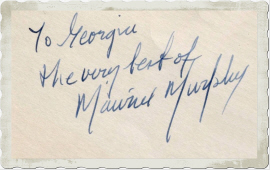 To Georgia
the very best of
Maurice Murphy